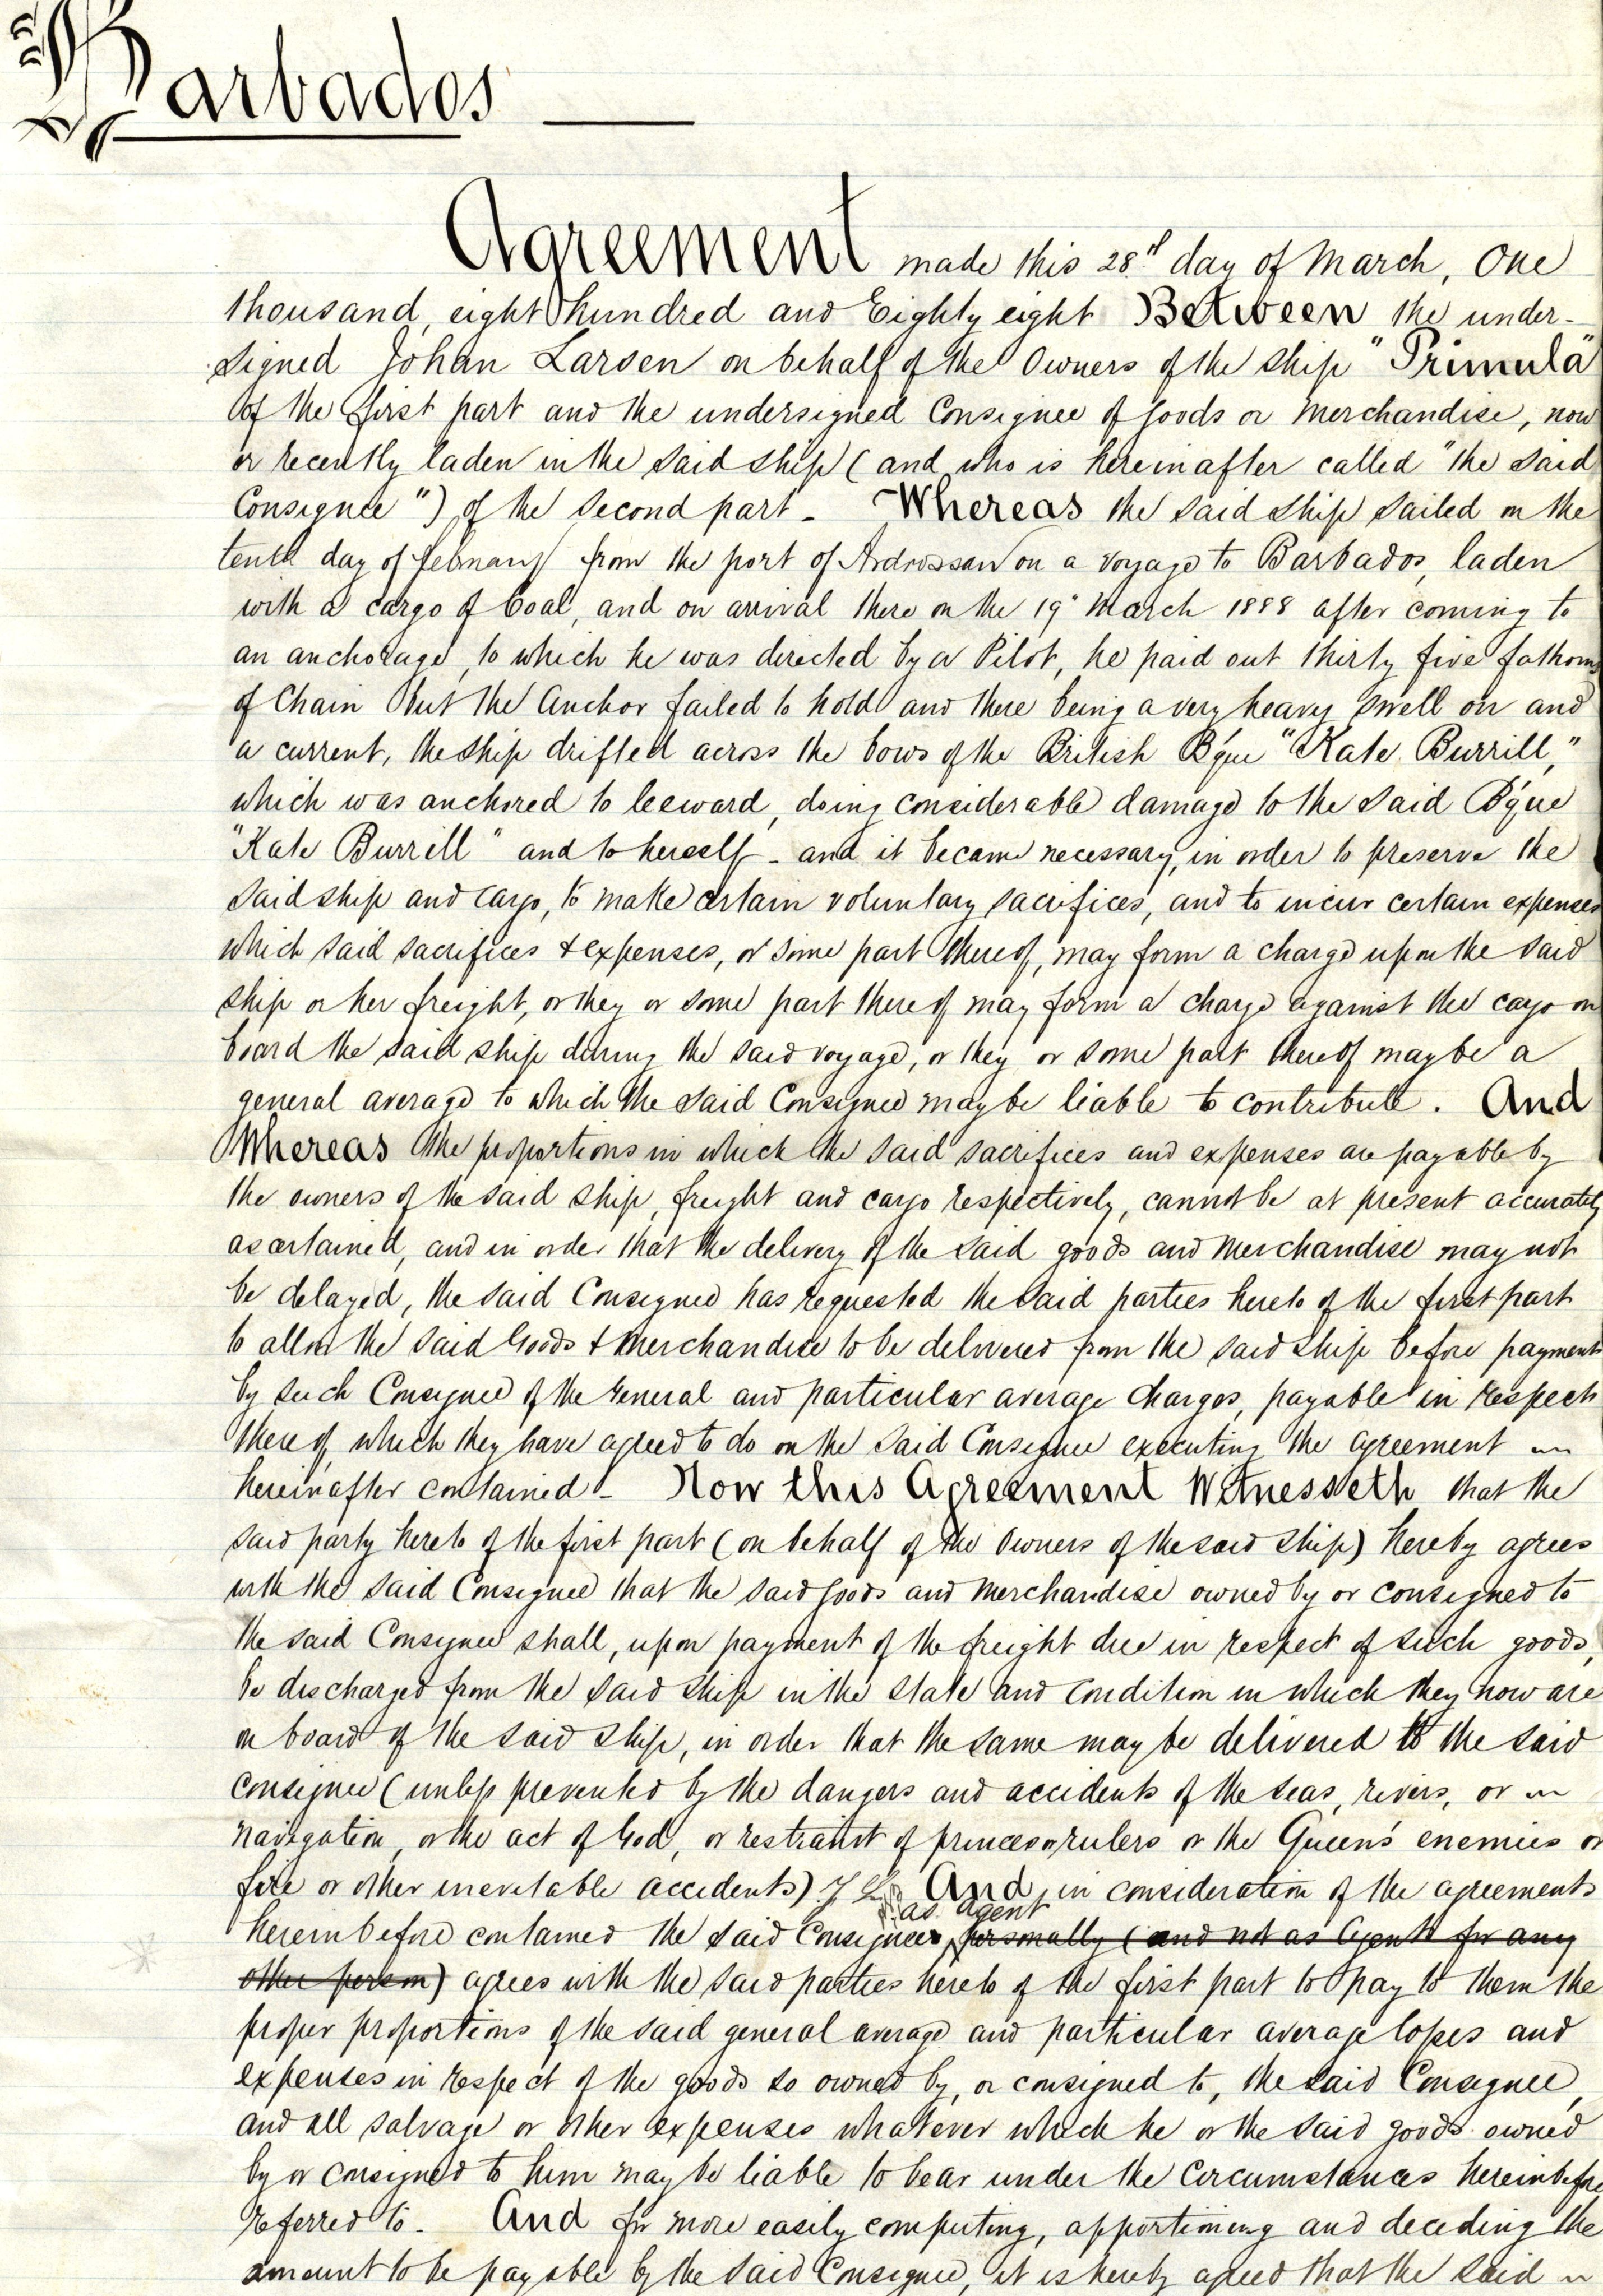 Barbados
Agreement made this 28th day of March, One
thousand, eight hundred and Eighty eight Between the under-
signed Johan Larsen on behalf of the Owners of the ship "Primula"
of the first part and the undersigned Consignee of Goods or Merchandise, now
or recently laden in the said ship (and who is hereinafter called "the said
Consignee") of the second part - Whereas the said ship sailed on the
tenth day of February from the port of Ardrossan on a voyage to Barbados, laden
with a cargo of Coal, and on arrival there on the 19" March 1888 after coming to
an anchorage, to which he was directed by a Pilot, he paid out thirty five fathoms
of Chain but the Anchor failed to hold and there being a very heavy swell on and
a current, the ship drifted across the bows of the British Bque "Kate Burrill,"
which was anchored to leeward, doing considerable damage to the said Bque
"Kate Burrill" and to herself - and it became necessary, in order to preserve the
said ship and cargo, to make certain voluntary sacrifices, and to incur certain expenses
which said sacrifices & expenses, or some part thereof, may form a charge upon the said
ship or her freight, or they or some part thereof may form a charge against the cargo on
board the said ship during the said voyage, or they or some part thereof may be a
general average to which the said Consignee may be liable to contribute. And
Whereas the proportions in which the said sacrifices and expenses are payable by
the owners of the said ship, freight and cargo respectively, cannot be at present accurately
ascertained, and in order that the delivery of the said goods and merchandise may not
be delayed, the said Consignee has requested the said parties hereto of the first part
to allow the said Goods & Merchandise to be delivered from the said ship before payment
by such Consignee of the General and particular average charges, payable in respect
thereof, which they have agreed to do on the said Consignee executing the agreement
hereinafter contained - Now this Agreement Witnesseth that the
said party hereto of the first part (on behalf of the Owners of the said ship) hereby agrees
with the said Consignee that the said goods and merchandise owned by or consigned to
the said Consignee shall, upon payment of the freight due in respect of such goods,
be discharged from the said ship in the state and condition in which they now are
on board of the said ship, in order that the same may be delivered to the said
consignee (unless prevented by the dangers and accidents of the seas, rivers, or
navigation, or the act of God, or restraint of princes or rulers or the Queen's enemies or
fire or other inevitable accidents) J L And, in consideration of the agreements
as agent
hereinbefore contained the said Consignee, personally (and not as Agents for any
other person) agrees with the said parties hereto of the first part to pay to them the
proper proportions of the said general average and particular average losses and
expenses in respect of the goods so owned by, or consigned to, the said Consignee,
and all salvage or other expenses whatever which he or the said goods owned
by or consigned to him may be liable to bear under the circumstances hereinbefore
referred to. And for more easily computing, apportioning and deciding the
amount to be payable by the said Consignee, it is hereby agreed that the said